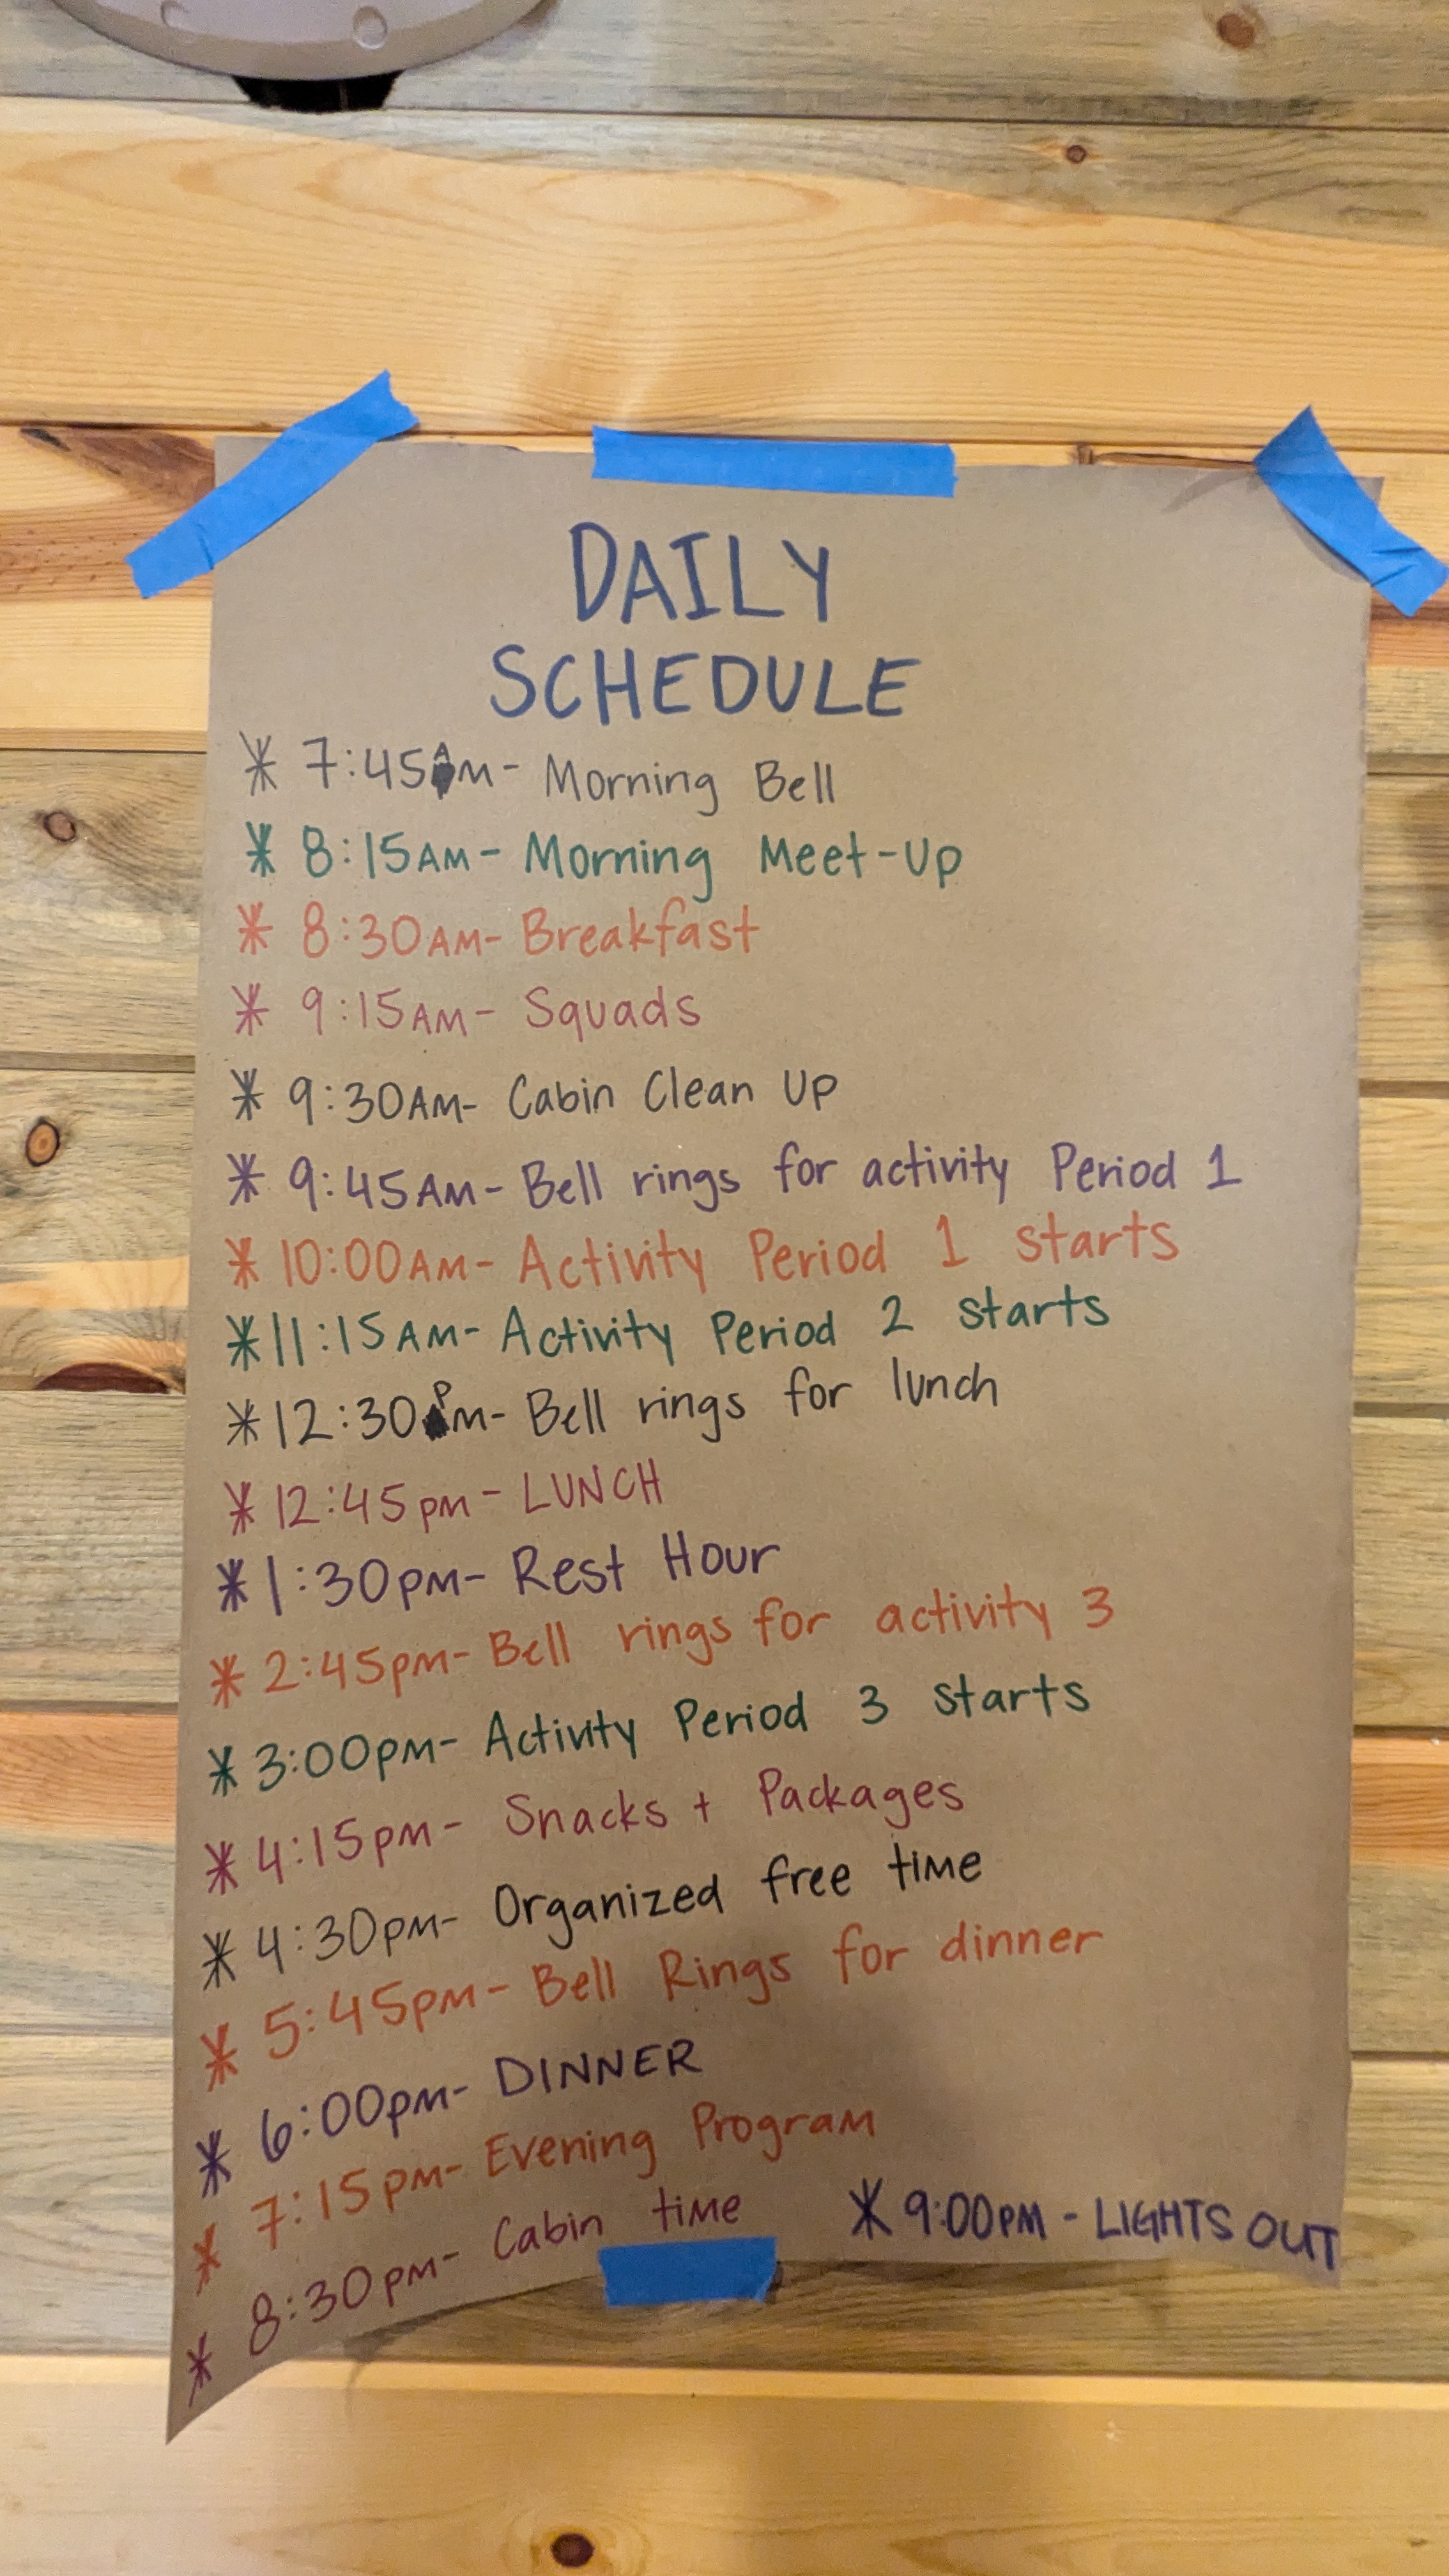 DAILY
SCHEDULE
* 7:45AM- Morning Bell
* 8:15AM- Morning Meet-Up
* 8:30AM- Breakfast
* 9:15AM- Squads
* 9:30AM- Cabin Clean Up
* 9:45AM- Bell rings for activity Period 1
* 10:00AM- Activity Period 1 starts
* 11:15AM- Activity Period 2 starts
* 12:30PM- Bell rings for lunch
* 12:45PM- LUNCH
* 1:30PM- Rest Hour
* 2:45PM- Bell rings for activity 3
* 3:00PM- Activity Period 3 starts
* 4:15PM- Snacks + Packages
* 4:30PM- Organized free time
* 5:45PM- Bell Rings for dinner
* 6:00PM- DINNER
* 7:15PM- Evening Program
* 8:30PM- Cabin time
* 9:00PM - LIGHTS OUT